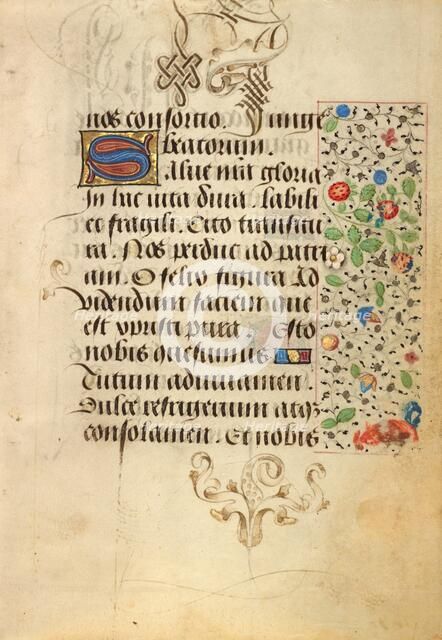 nos consortio. Iunge
beatorum.
Salue nra gloria
In hac uita dura. labili
et fragili. Cito transitu
ra. Nos perduc ad patri
am. O felix figura Ad
videndum faciem que
est xpristi pura. Esto
nobis quesumus
Tutum adiuuamen.
Dulce refrigerium atqz
consolamen. Et nobis